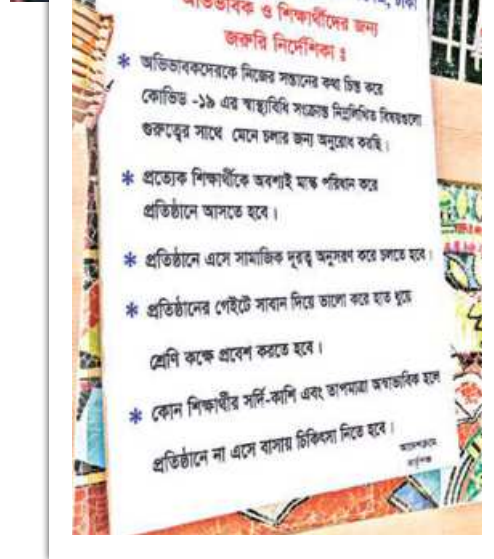 ঢাকা
অভিভাবক ও শিক্ষার্থীদের জন্য
জরুরি নির্দেশিকা ঃ
* অভিভাবকদেরকে নিজের সন্তানের কথা চিন্তা করে
কোভিড -১৯ এর স্বাস্থ্যবিধি সংক্রান্ত নিম্নলিখিত বিষয়গুলো
গুরুত্বের সাথে মেনে চলার জন্য অনুরোধ করছি।
* প্রত্যেক শিক্ষার্থীকে অবশ্যই মাস্ক পরিধান করে
প্রতিষ্ঠানে আসতে হবে।
* প্রতিষ্ঠানে এসে সামাজিক দূরত্ব অনুসরণ করে চলতে হবে।
* প্রতিষ্ঠানের গেইটে সাবান দিয়ে ভালো করে হাত ধুয়ে
শ্রেণি কক্ষে প্রবেশ করতে হবে।
* কোন শিক্ষার্থীর সর্দি-কাশি এবং তাপমাত্রা অস্বাভাবিক হলে
প্রতিষ্ঠানে না এসে বাসায় চিকিৎসা নিতে হবে।
আদেশক্রমে
কর্তৃপক্ষ